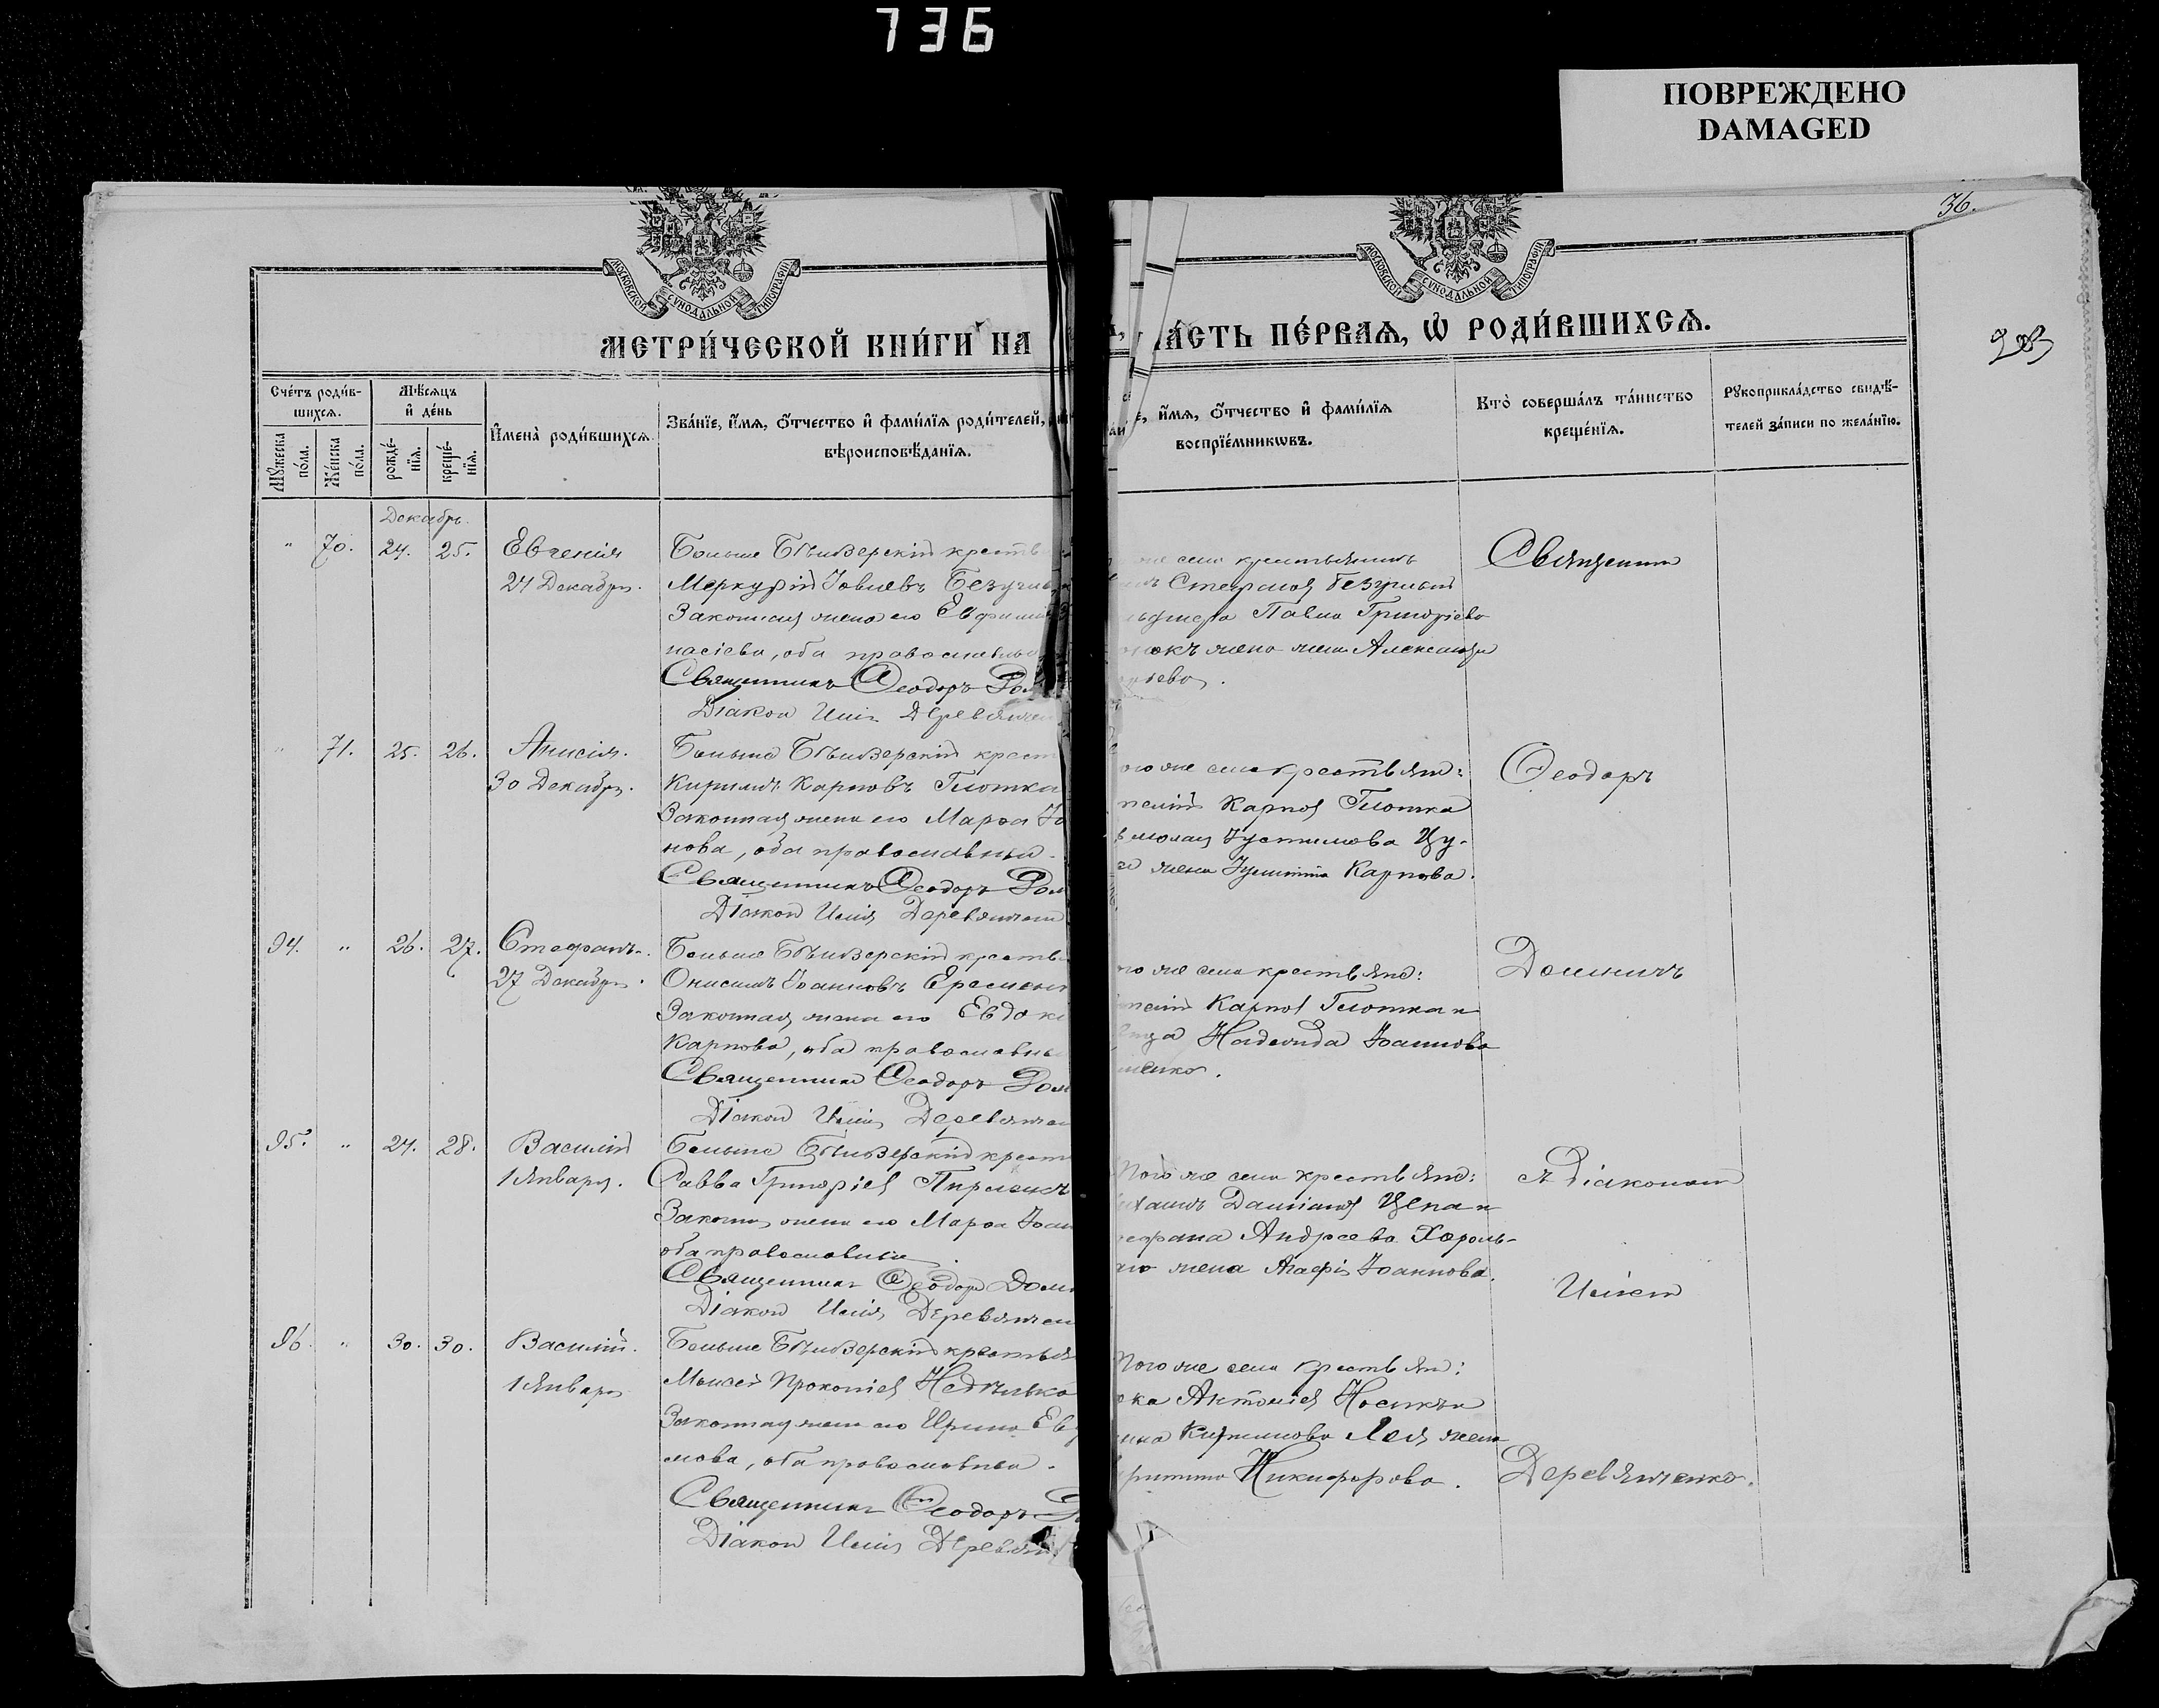 736
ПОВРЕЖДЕНО
DAMAGED
36.
МОСКОВСКОЙ СѴНОДАЛЬНОЙ ТИПОГРАФІИ
МОСКОВСКОЙ СѴНОДАЛЬНОЙ ТИПОГРАФІИ
МЕТРИ́ЧЕСКОЙ КНИ́ГИ НА
ЧА́СТЬ ПЕ́РВАЯ, Ѿ РОДИ́ВШИХСЯ.
Сче́тъ роди́в-
шихся.
Мѣ́сяцъ
и҆ де́нь
Мꙋжеска по́ла.
Же́нска по́ла.
рожде́-
нїя.
креще́-
нїя.
И҆мена̀ роди́вшихся.
Зва́нїе, и҆́мя, ѻ҆́тчество и҆ фамі́лїя роди́телей,
вѣроисповѣ́данїя.
е, и҆́мя, ѻ҆́тчество и҆ фамі́лїя
воспрїе́мникѡвъ.
Кто̀ соверша́лъ та́инство
креще́нїя.
Рꙋкоприкла́дство свидѣ́-
телей за́писи по жела́нїю.
Декабрь.
" 70. 24. 25. Евгенія
24 Декабря.
Больше Бѣлозерскій крест
Меркурій Іовлевъ Безуглы
Законная жена его Евфим
насіева, оба православно
Священникъ Ѳеодоръ Дом
Діаконъ Илія Деревянчен
же села крестьянинъ
Стефановъ Безуглый
Павла Григоріева
жена Александра
Священник
" 71. 25. 26. Анисія.
30 Декабря.
Больше Бѣлозерскій крест
Кириллъ Карповъ Глотка
Законная жена его Марѳа Іо
нова, оба православные.
Священникъ Ѳеодоръ Дом
Діаконъ Илія Деревянчен
ого же села крестьяне:
Карповъ Глотка
Іустинова Цу-
жена Іулитта Карпова.
Ѳеодоръ
94. " 26. 27. Стефанъ.
27 Декабря.
Больше Бѣлозерскій крестья
Онисимъ Іоанновъ Еремен
Законная жена его Евдокі
Карпова, оба православны
Священникъ Ѳеодоръ Дом
Діаконъ Илія Деревянчен
го же села крестьяне:
Карповъ Глотка и
Надежда Іоаннова
менко.
95. " 24. 28. Василій
1 Января.
Больше Бѣлозерскій крест
Савва Григоріев
Законная жена его Марѳа Іоан
оба православные
Священникъ Ѳеодоръ Дом
Діаконъ Илія Деревянчен
Того же села крестьяне:
Даміановъ Цепа и
Андреева Хороль-
аго жена Агафія Іоаннова.
Діакономъ
Иліем
96. " 30. 30. Василій.
1 Января
Больше Бѣлозерскій крестья
Моисей Прокопіев Недѣлько
Законная жена его Ирина Ев
мова, оба православные.
Священникъ Ѳеодоръ
Діаконъ Илія Деревян
Того же села крестьяне:
ка Антоніев Носикъ и
Кириллова жена
Никифорова.
Деревянченко.